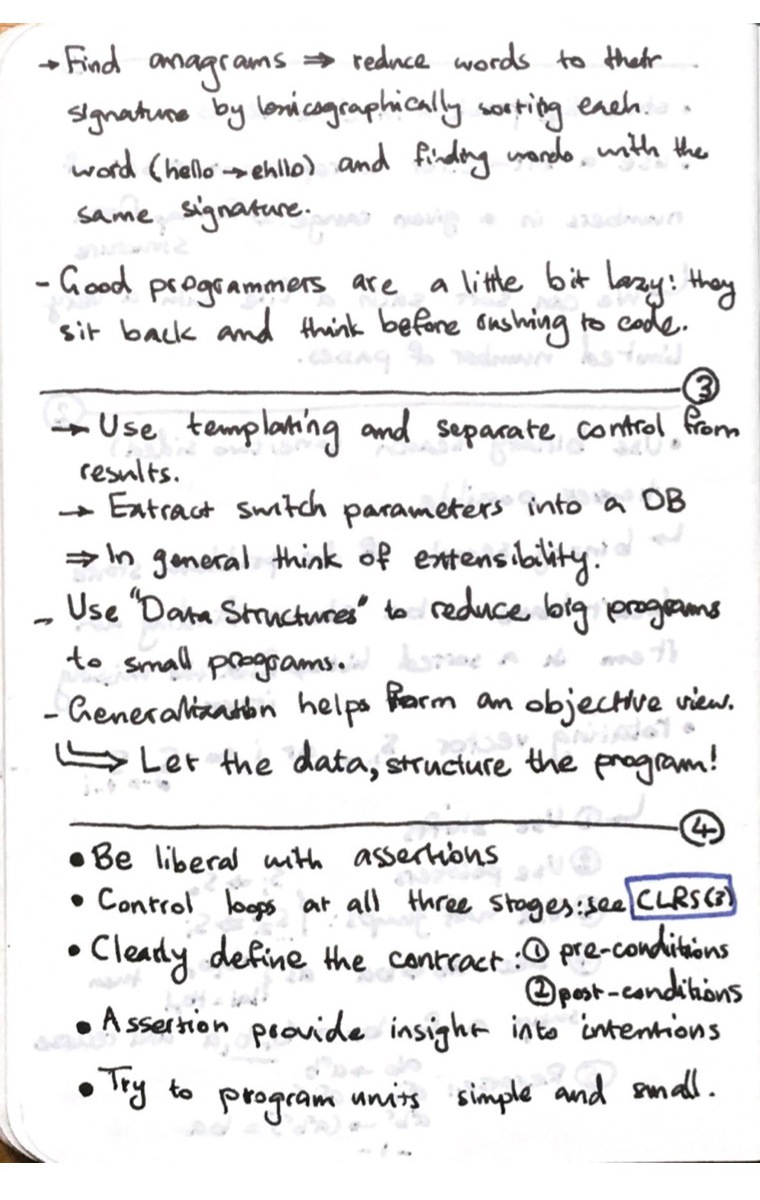 → Find anagrams ⇒ reduce words to their
signature by lexicographically sorting each
word (hello → ehllo) and finding words with the
same signature.
- Good programmers are a little bit lazy: they
sit back and think before rushing to code.
③
→ Use templating and separate control from
results.
→ Extract switch parameters into a DB
⇒ In general think of extensibility.
- Use "Data Structures" to reduce big programs
to small programs.
- Generalization helps form an objective view.
↳ Let the data, structure the program!
④
• Be liberal with assertions
• Control loops at all three stages: see CLRS(3)
• Clearly define the contract: ① pre-conditions
② post-conditions
• Assertion provide insight into intentions
• Try to program units simple and small.